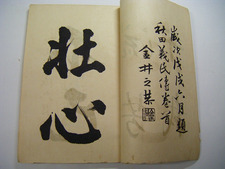 歳次戊戌六月題
秋田義民傳卷首
金井之恭
壮心